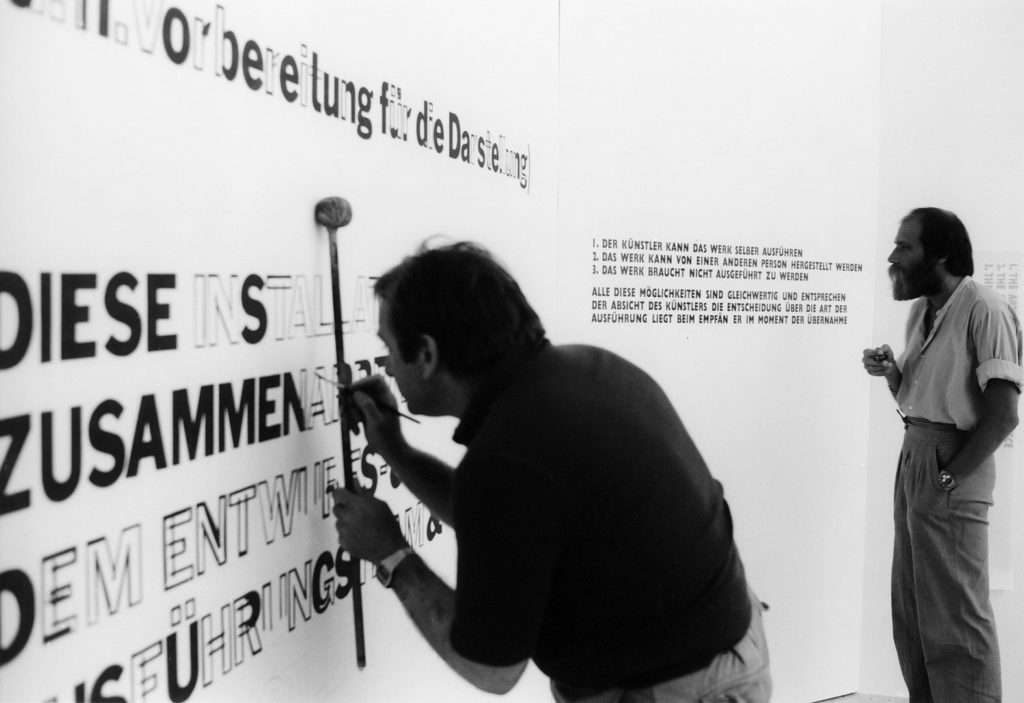 Vorbereitung für die Darstellung)
DIESE INSTALLAT
ZUSAMMENARB
DEM ENTWURFS-
USFÜHRUNGS
1. DER KÜNSTLER KANN DAS WERK SELBER AUSFÜHREN
2. DAS WERK KANN VON EINER ANDEREN PERSON HERGESTELLT WERDEN
3. DAS WERK BRAUCHT NICHT AUSGEFÜHRT ZU WERDEN
ALLE DIESE MÖGLICHKEITEN SIND GLEICHWERTIG UND ENTSPRECHEN
DER ABSICHT DES KÜNSTLERS DIE ENTSCHEIDUNG ÜBER DIE ART DER
AUSFÜHRUNG LIEGT BEIM EMPFÄN ER IM MOMENT DER ÜBERNAHME
1. THE AR
2. THE
3. TH